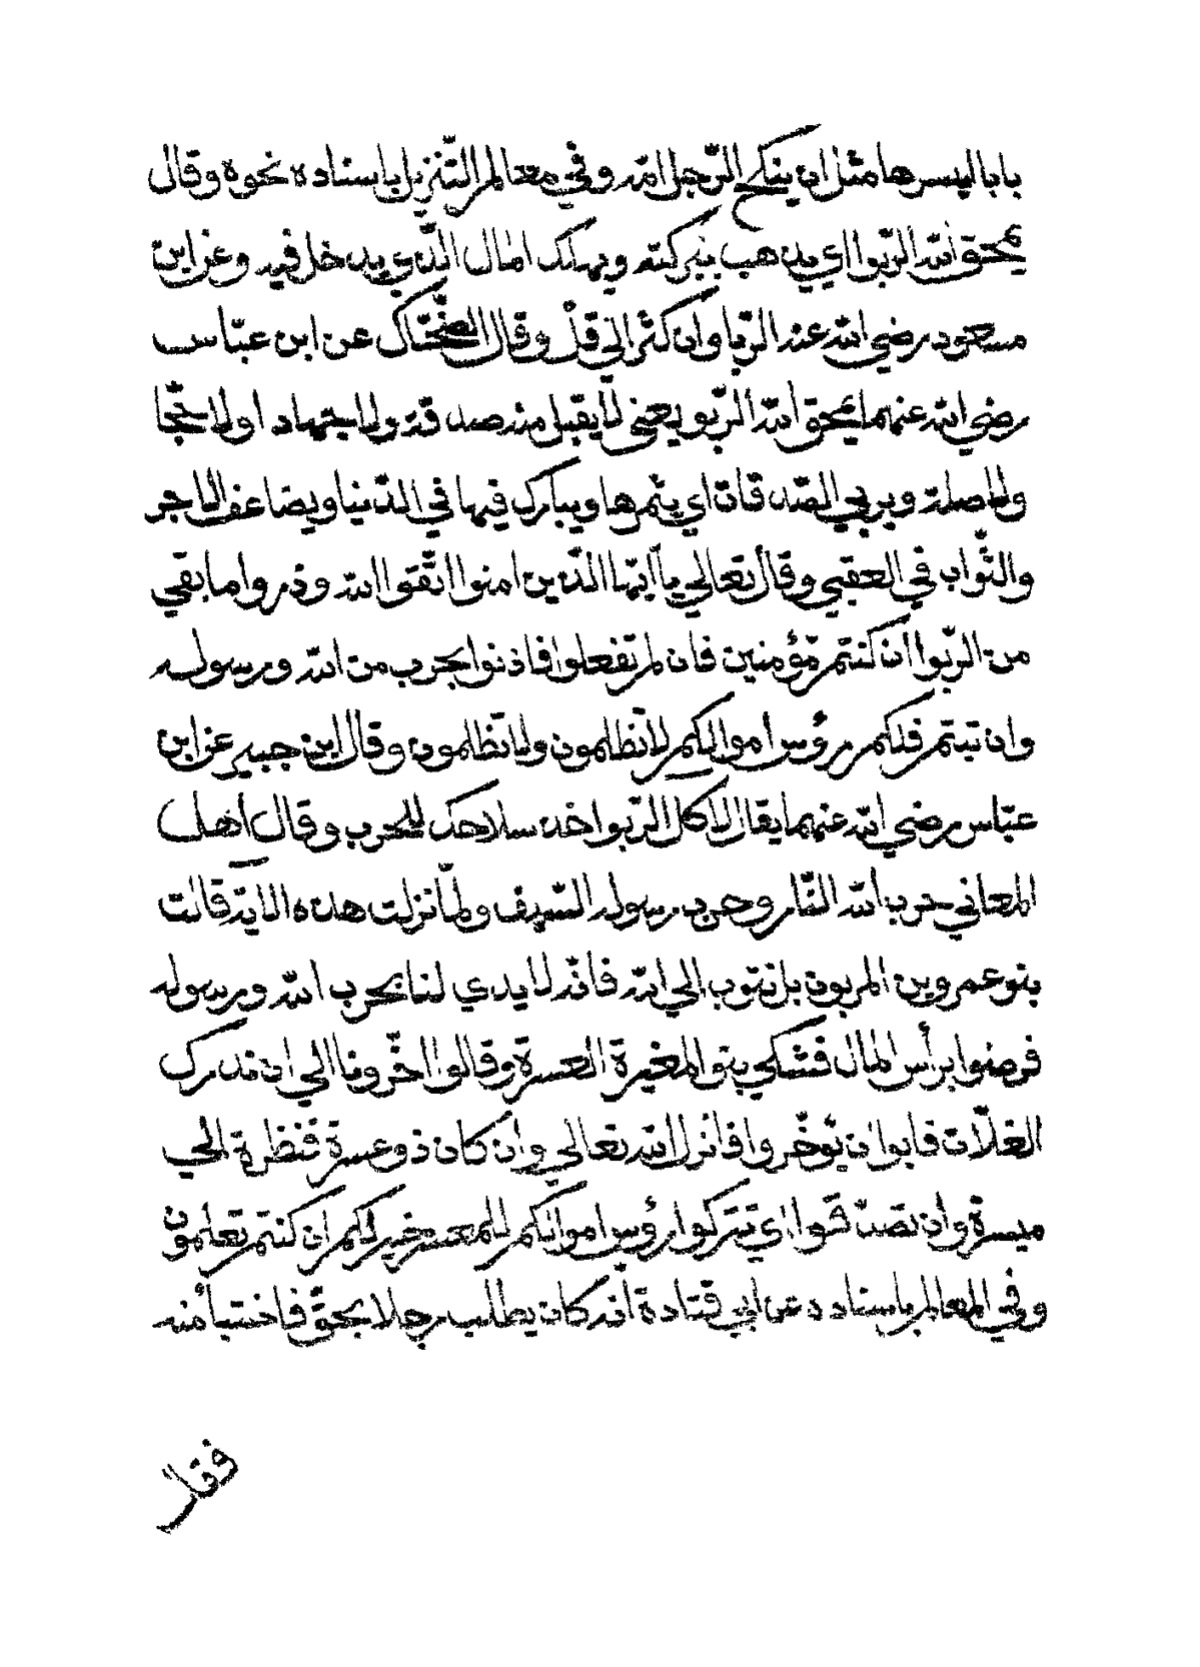 بابا ايسرها مثل ان ينكح الرّجل امّه وفي معالم التّنزيل باسناده نحوه وقال
يمحق الله الرّبوا اي يذهب ببركته ويهلك المال الّذي يدخل فيه وعن ابن
مسعود رضي الله عنه الرّبا وان كثر الي قلّ وقال الضّحّاك عن ابن عبّاس
رضي الله عنهما يمحق الله الرّبو يعني لا يقبل منه صدقة ولا جهاد اولا حجّا
ولا صلة ويربي الصّدقات اي يثمرها ويبارك فيها في الدّنيا ويضاعف الاجر
والثّواب في العقبي وقال تعالي يآ ايّها الذّين امنوا اتّقوا الله وذروا ما بقي
من الرّبوا ان كنتم مّؤمنين فان لم تفعلوا فاذنوا بحرب من الله ورسوله
وان تبتم فلكم رؤس أموالكم لا تظلمون ولا تظلمون وقال ابن جبير عن ابن
عبّاس رضي الله عنهما يقال لاكل الرّبوا خذ سلاحك للحرب وقال اهل
المعاني حرب الله النّار وحرب رسوله السّيف ولمّا نزلت هذه الاية قالت
بنو عمرو بن المربون بل نتوب الي الله فانّه لا يدي لنا بحرب الله ورسوله
فرضوا برأس المال فشكي بنو المغيرة العسرة وقالوا اخّرونا الي ان ندرك
الغلّات فابوا ان يّؤخّروا فانزل الله تعالي وان كان ذو عسرة فنظرة الي
ميسرة وان تصدّقوا اي تتركوا رؤس اموالكم للمعسر خير لكم ان كنتم تعلمون
وفي المعالم باسناده عن ابي قتادة انّه كان يطلب رجلا بحقّ فاختبأ منه
فقال